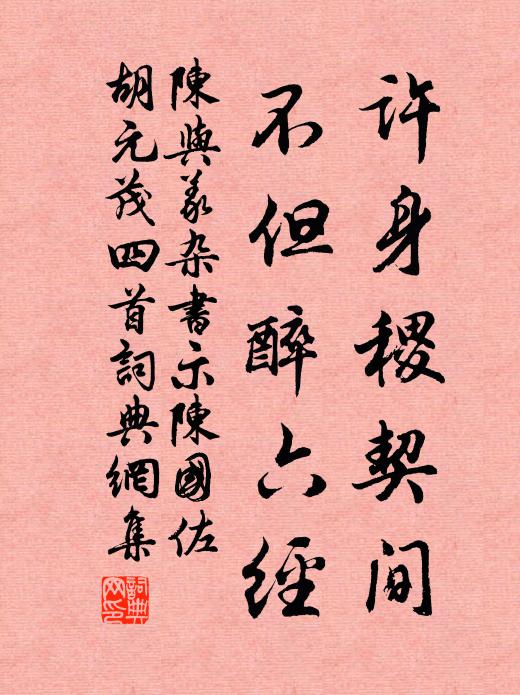 許身稷契間
不但醉六經
陳與義杂書示陳國佐
胡元茂四首詞典網集
詞典網印